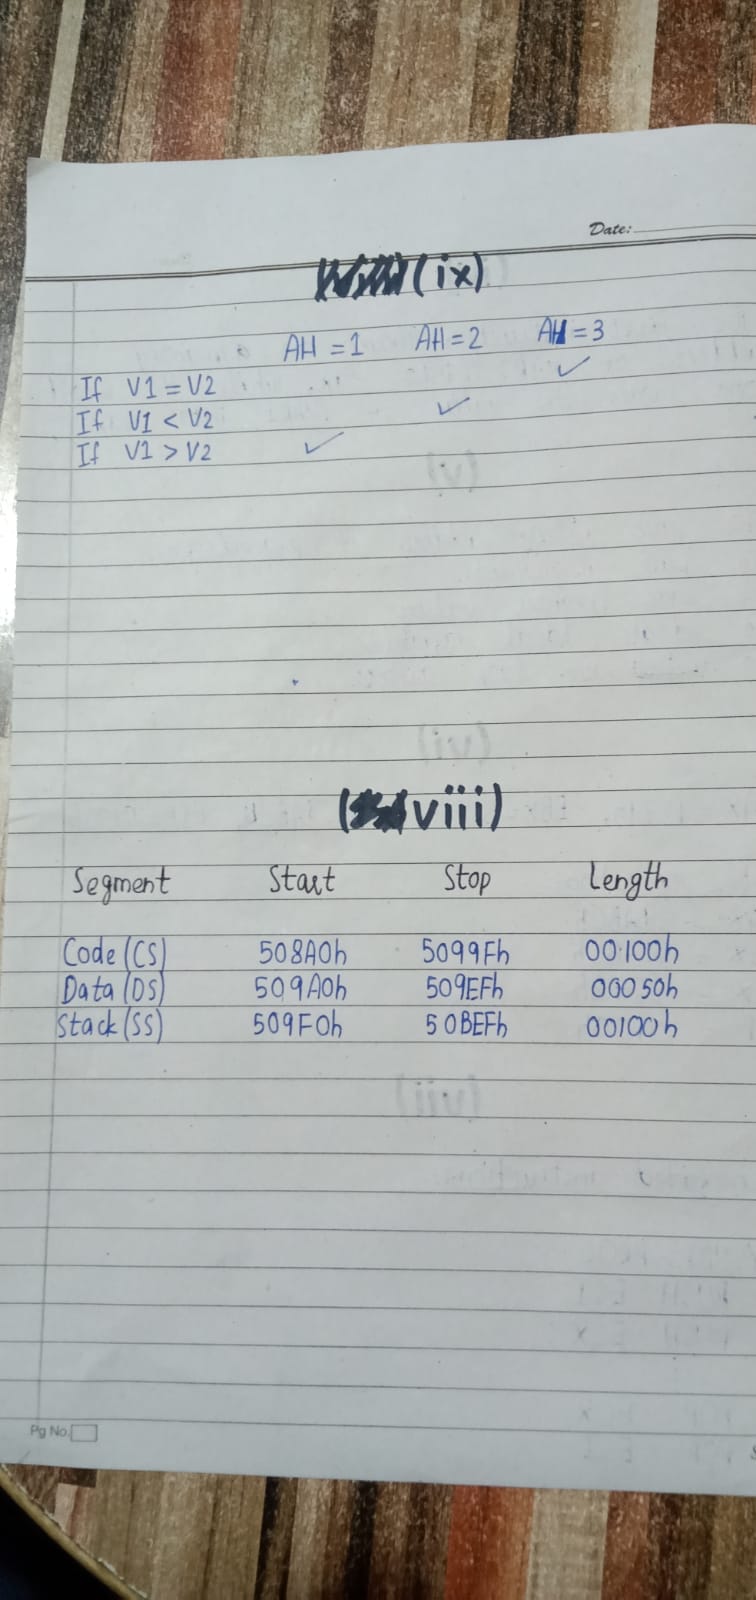 Date:
(ix)
AH = 1 AH = 2 AH = 3
If V1 = V2 ✓
If V1 < V2 ✓
If V1 > V2 ✓
(viii)
Segment Start Stop Length
Code (CS) 508A0h 5099Fh 00100h
Data (DS) 509A0h 509EFh 00050h
Stack (SS) 509F0h 50BEFh 00100h
Pg No.